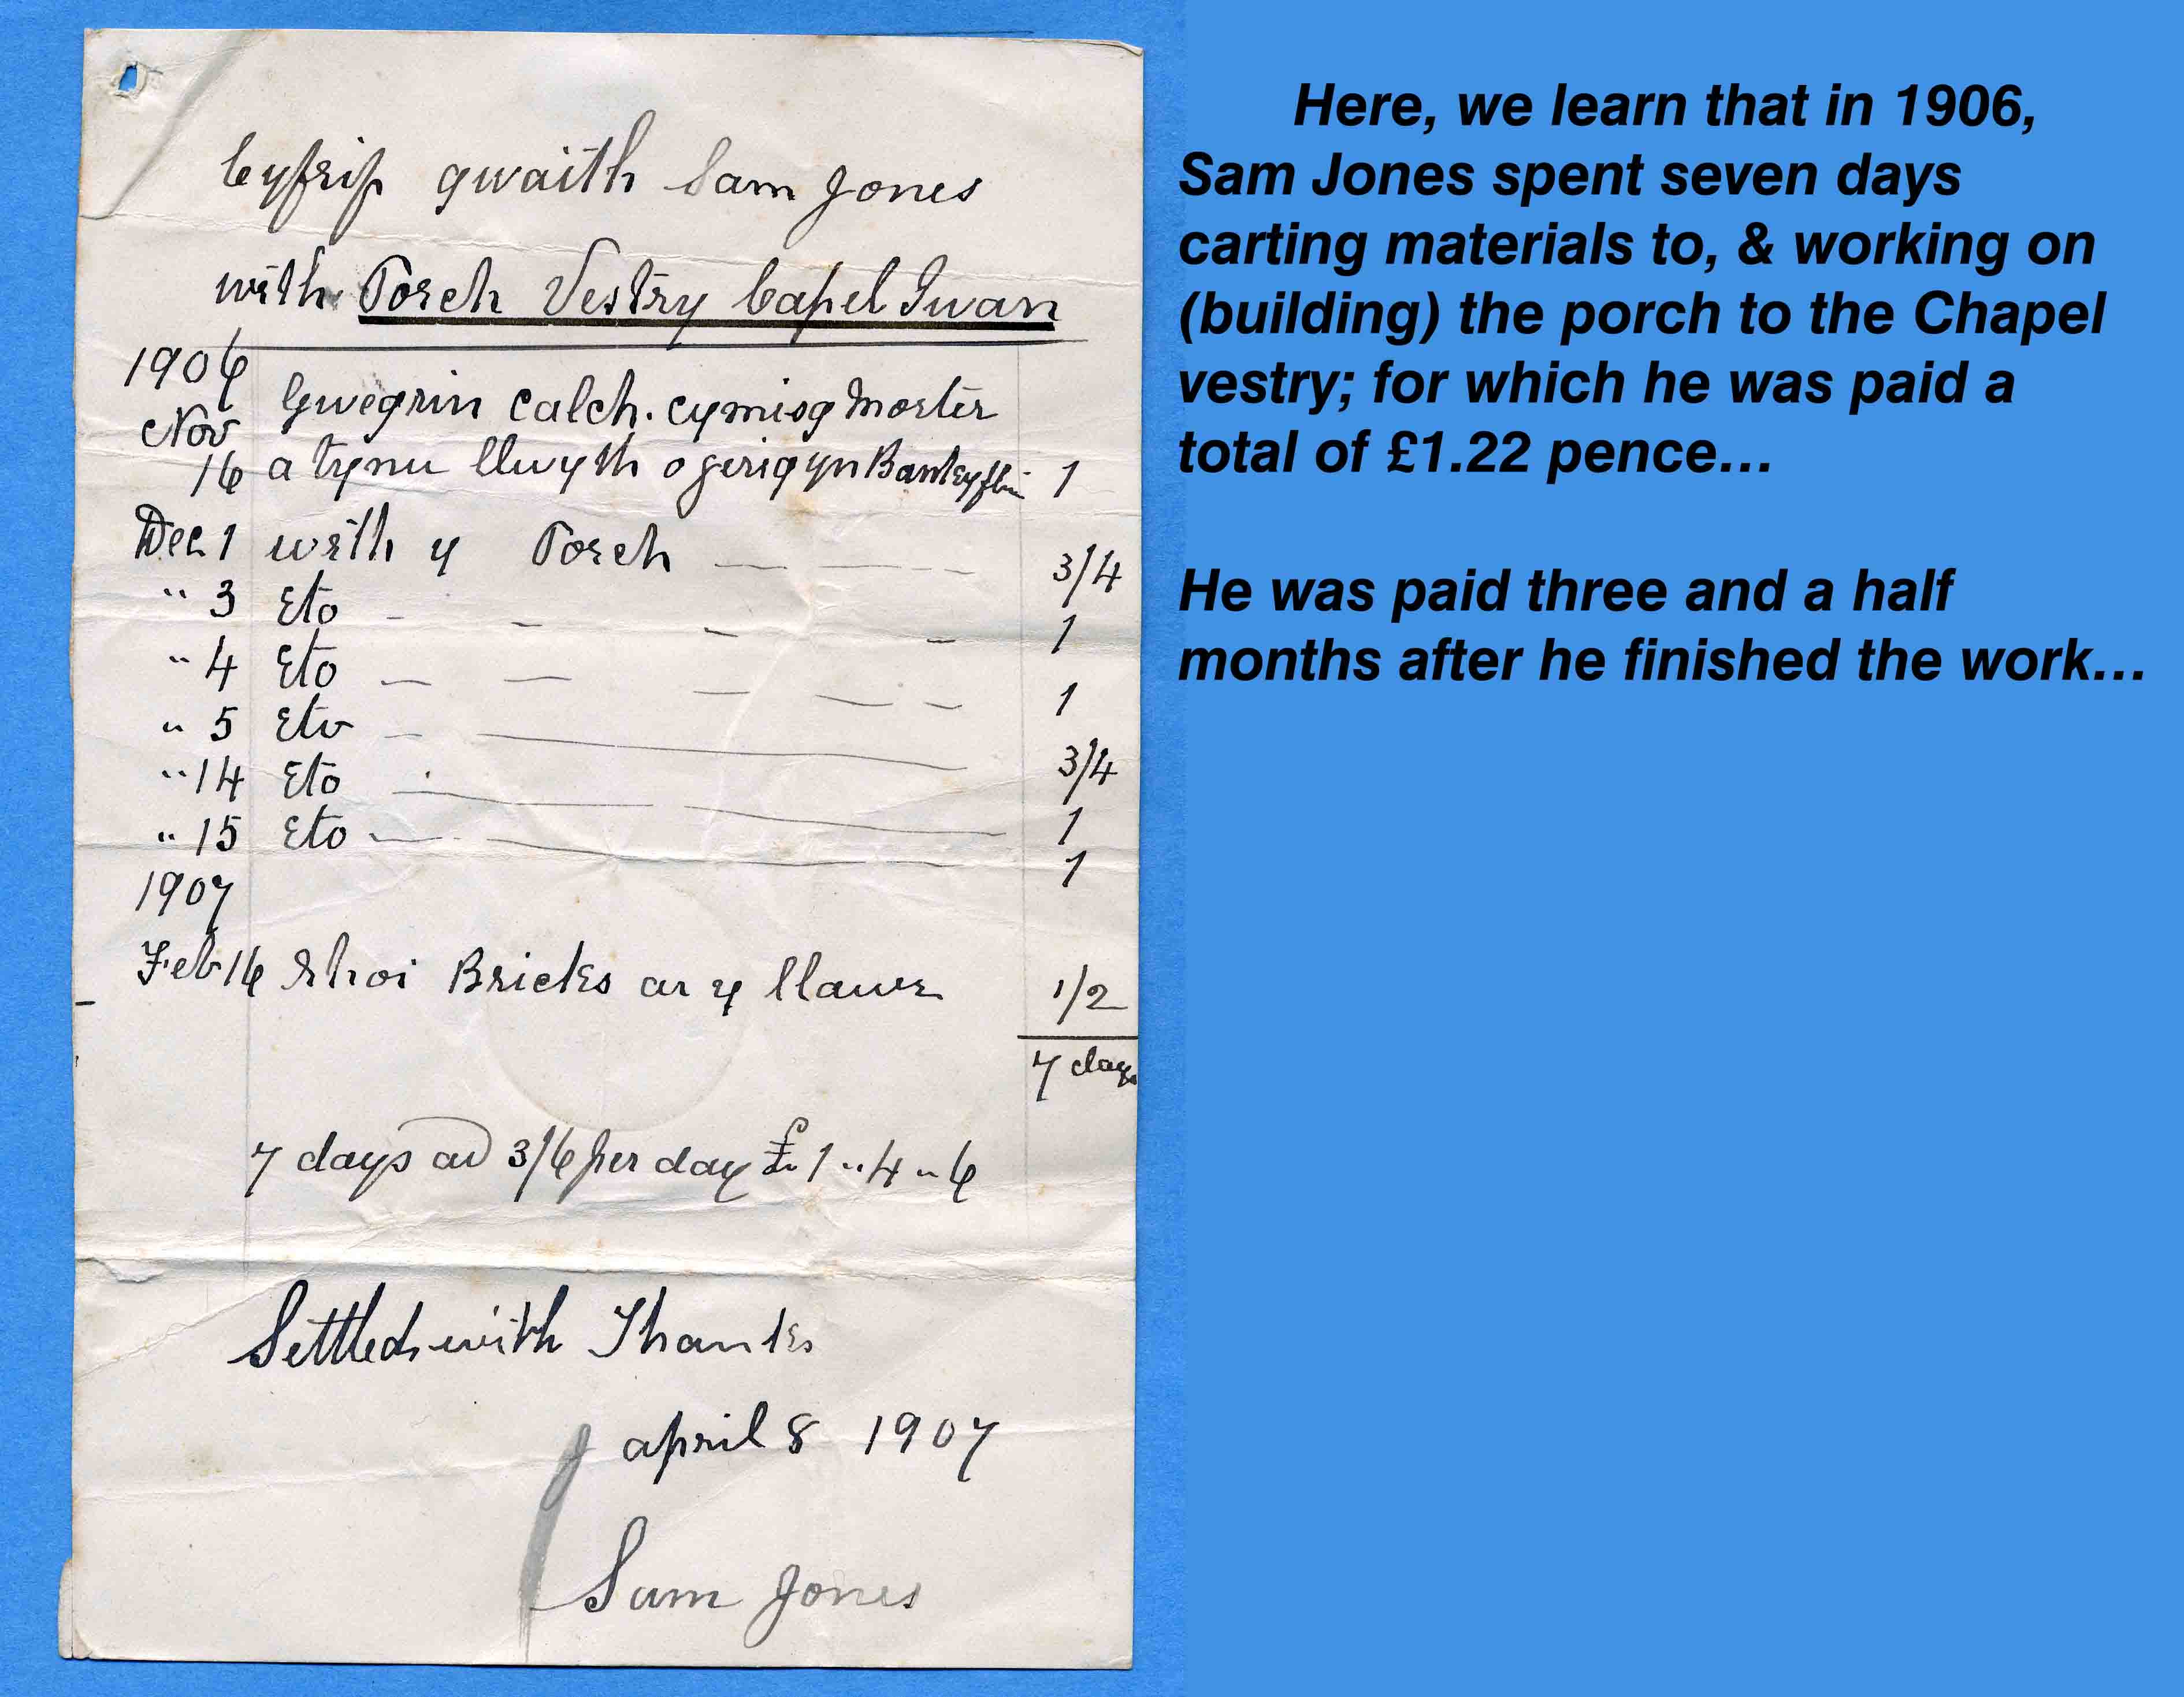 Cyfrif gwaith Sam Jones
wrth Porch Vestry Capel Iwan
1906
Nov Gwegrin calch. cymisg Morter
16 a tynu llwyth o gerig yn 1
Dec 1 wrth y Porch 3/4
" 3 Eto - - - - 1
" 4 Eto - - - - - 1
" 5 Eto - 3/4
" 14 Eto 1
" 15 Eto 1
1907
Feb 16 Rhoi Bricks ar y llawr 1/2
7 days
7 days ad 3/6 per day £ 1 " 4 " 6
Settled with Thanks
april 8 1907
Sam Jones
Here, we learn that in 1906,
Sam Jones spent seven days
carting materials to, & working on
(building) the porch to the Chapel
vestry; for which he was paid a
total of £1.22 pence...
He was paid three and a half
months after he finished the work...